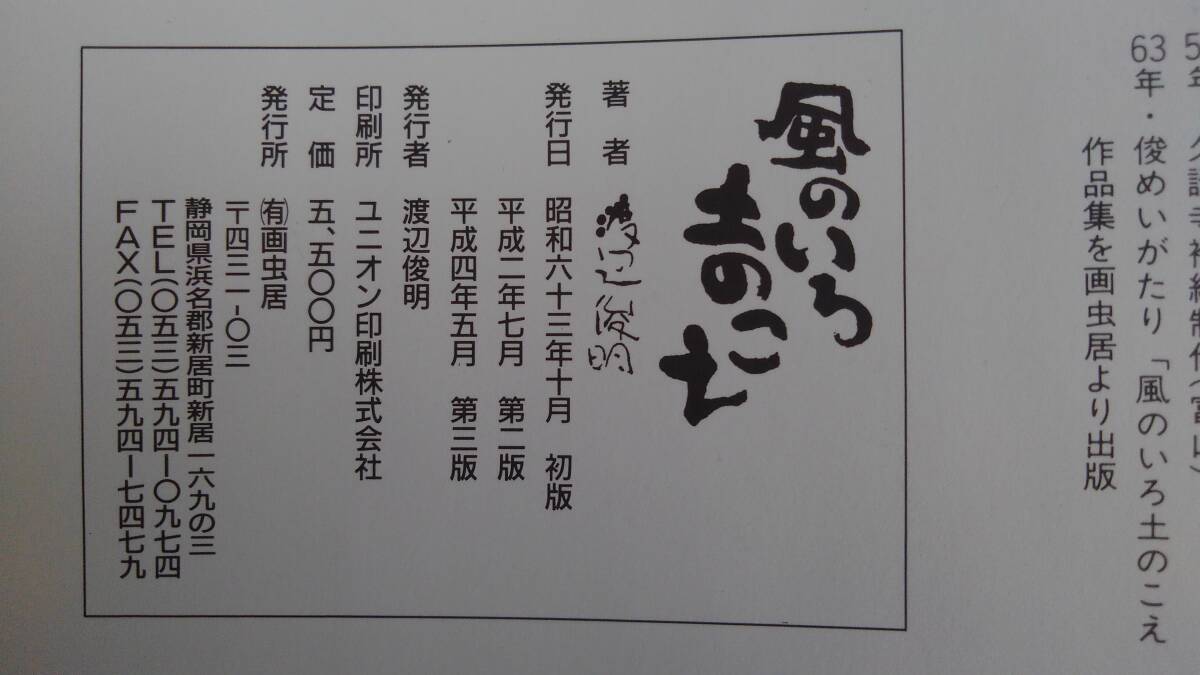 63年・俊めいがたり「風のいろ土のこえ
作品集を画虫居より出版
風のいろ
土のこえ
著者 渡辺俊明
発行日 昭和六十三年十月 初版
平成二年七月 第二版
平成四年五月 第三版
発行者 渡辺俊明
印刷所 ユニオン印刷株式会社
定価 五、五〇〇円
発行所 ㈲画虫居
〒四三一-〇三
静岡県浜名郡新居町新居一六九の三
TEL(〇五三)五九四-〇九七四
FAX(〇五三)五九四-七四七九